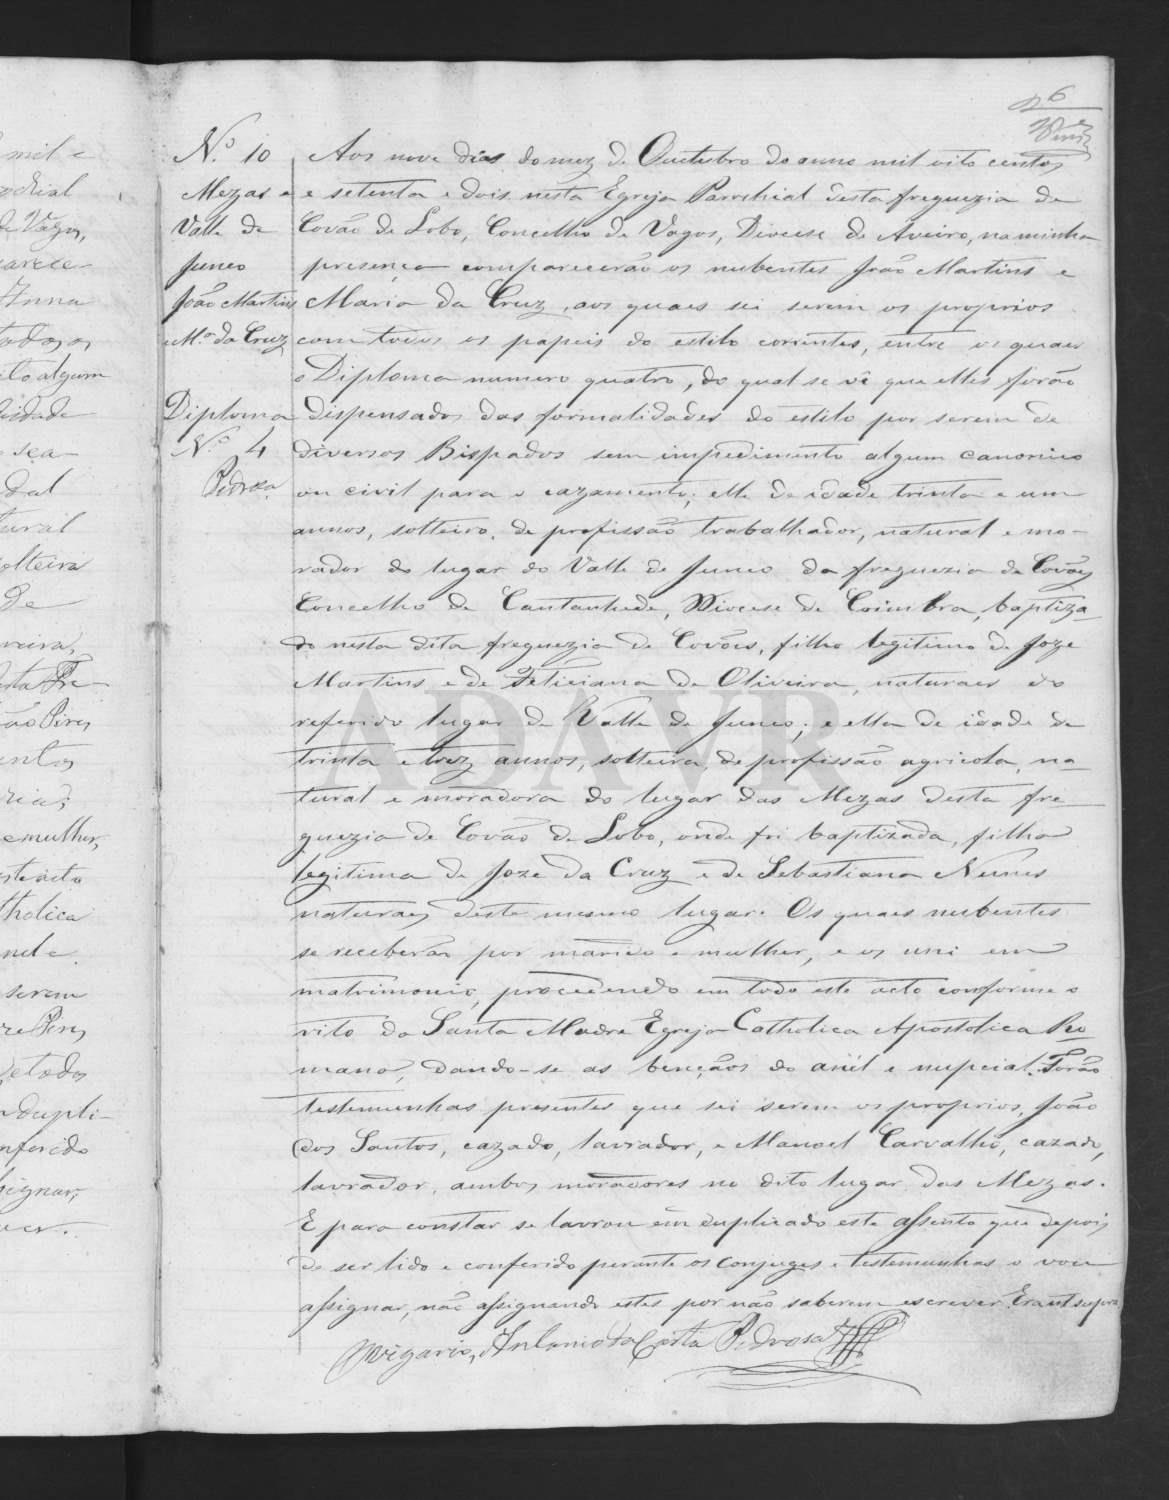 6
Nº. 10
Mezas e
Valle de
Junco
João Martins
Mª. da Cruz
Diploma
Nº. 4
Pedroza
Aos nove dias do mez de Outubro do anno mil oito centos
e setenta e dois nesta Egreja Parochial desta freguezia de
Covão de Lobo, Concelho de Vagos, Diocese de Aveiro, na minha
presença comparecerão os nubentes João Martins e
Maria da Cruz, aos quaes sei serem os proprios
com todos os papeis do estilo correntes, entre os quaes
o Diploma numero quatro, do qual se vê que elles forão
dispensados das formalidades do estilo por serem de
diversos Bispados sem impedimento algum canonico
ou civil para o cazamento; elle de idade trinta e um
annos, solteiro, de profissão trabalhador, natural e mo-
rador do lugar do Valle de Junco da freguezia de Covões
Concelho de Cantanhede, Diocese de Coimbra, baptiza-
do nesta dita freguezia de Covões, filho legitimo de Joze
Martins e de Feliciana de Oliveira, naturaes do
referido lugar de Valle de Junco; e ella de idade de
trinta e trez annos, solteira, de profissão agricola, na-
tural e moradora do lugar das Mezas desta fre-
guezia de Covão de Lobo, onde foi baptizada, filha
legitima de Joze da Cruz e de Sebastiana Nunes
naturaes deste mesmo lugar. Os quaes nubentes
se receberão por marido e mulher, e os uni em
matrimonio, procedendo em todo este acto conforme o
rito da Santa Madre Egreja Catholica Apostolica Ro-
mana, dando-se as bençãos do anél e nupcial. Forão
testemunhas presentes que sei serem os proprios, João
dos Santos, cazado, lavrador, e Manoel Carvalho, cazado,
lavrador, ambos moradores no dito lugar das Mezas.
E para constar se lavrou em duplicado este assento que depois
de ser lido e conferido perante os conjuges e testemunhas o vou
assignar, não assignando estes por não saberem escrever. Era ut supra
O Vigario, Antonio da Costa Pedrosa
ADAVR